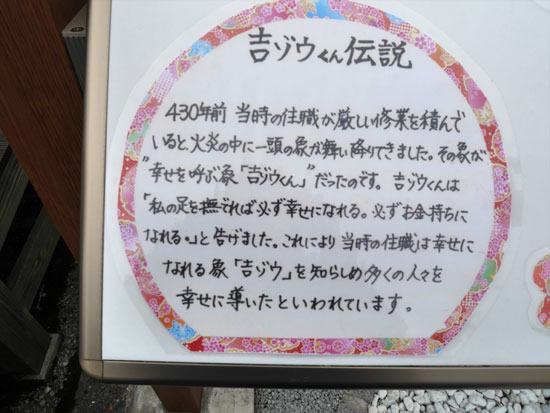 吉ゾウくん伝説
430年前 当時の住職が厳しい修業を積んで
いると、火炎の中に一頭の象が舞い降りてきました。その象が
"幸せを呼ぶ象「吉ゾウくん」"だったのです。 吉ゾウくんは
「私の足を撫でれば必ず幸せになれる。必ずお金持ちに
なれる。」と告げました。これにより 当時の住職は幸せに
なれる象「吉ゾウ」を知らしめ多くの人々を
幸せに導いたといわれています。